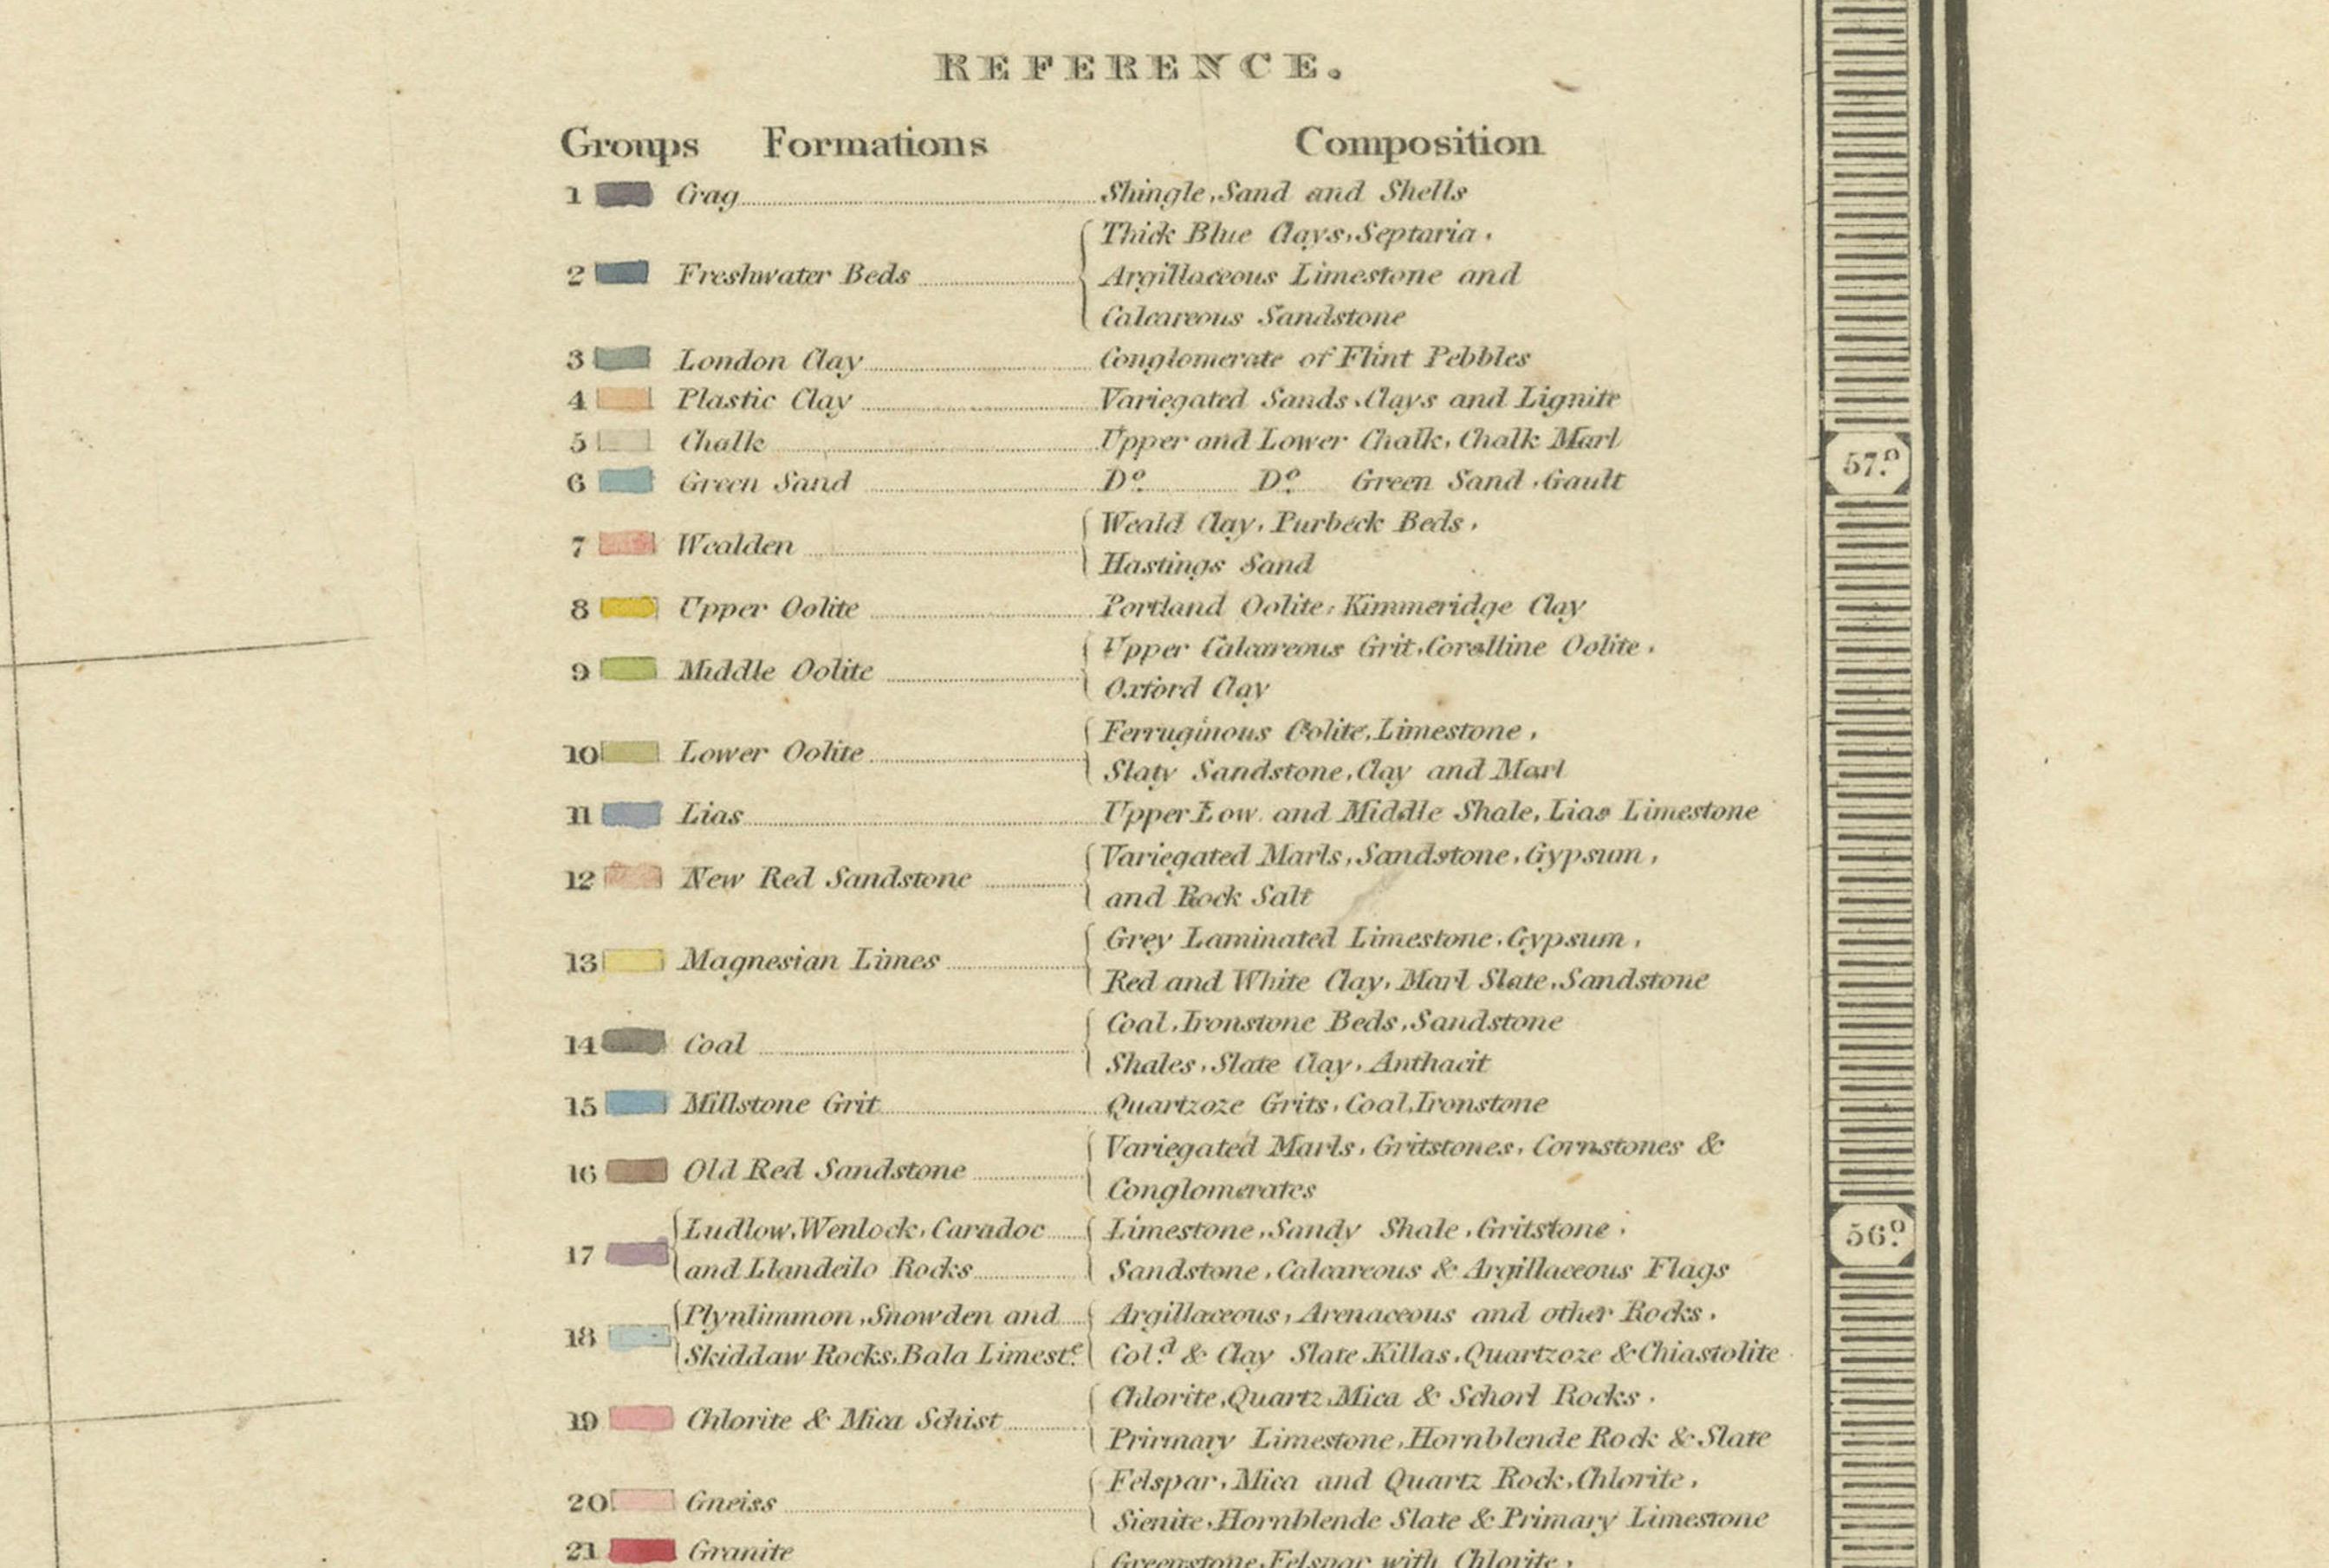 REFERENCE.
Groups Formations Composition
1 Crag Shingle, Sand and Shells
Thick Blue Clays, Septaria,
2 Freshwater Beds Argillaceous Limestone and
Calcareous Sandstone
3 London Clay Conglomerate of Flint Pebbles
4 Plastic Clay Variegated Sands, Clays and Lignite
5 Chalk Upper and Lower Chalk, Chalk Marl
57.º
6 Green Sand Dº. Dº. Green Sand, Gault
Weald Clay, Purbeck Beds,
7 Wealden
Hastings Sand
8 Upper Oolite Portland Oolite, Kimmeridge Clay
Upper Calcareous Grit, Coralline Oolite,
9 Middle Oolite
Oxford Clay
Ferruginous Oolite, Limestone,
10 Lower Oolite
Slaty Sandstone, Clay and Marl
11 Lias Upper Low. and Middle Shale, Lias Limestone
Variegated Marls, Sandstone, Gypsum,
12 New Red Sandstone
and Rock Salt
Grey Laminated Limestone, Gypsum,
13 Magnesian Limes
Red and White Clay, Marl Slate, Sandstone
Coal, Ironstone Beds, Sandstone
14 Coal
Shales, Slate Clay, Anthacit
15 Millstone Grit Quartzoze Grits, Coal, Ironstone
Variegated Marls, Gritstones, Cornstones &
16 Old Red Sandstone
Conglomerates
Ludlow, Wenlock, Caradoc Limestone, Sandy Shale, Gritstone,
56.º
17
and Llandeilo Rocks Sandstone, Calcareous & Argillaceous Flags
Plynlimmon, Snowden and Argillaceous, Arenaceous and other Rocks,
18
Skiddaw Rocks, Bala Limest.e Col.d & Clay Slate, Killas, Quartzoze & Chiastolite
Chlorite, Quartz, Mica & Schorl Rocks,
19 Chlorite & Mica Schist
Prirmary Limestone, Hornblende Rock & Slate
Felspar, Mica and Quartz Rock, Chlorite,
20 Gneiss
Sienite, Hornblende Slate & Primary Limestone
21 Granite
Greenstone, Felspar with Chlorite,